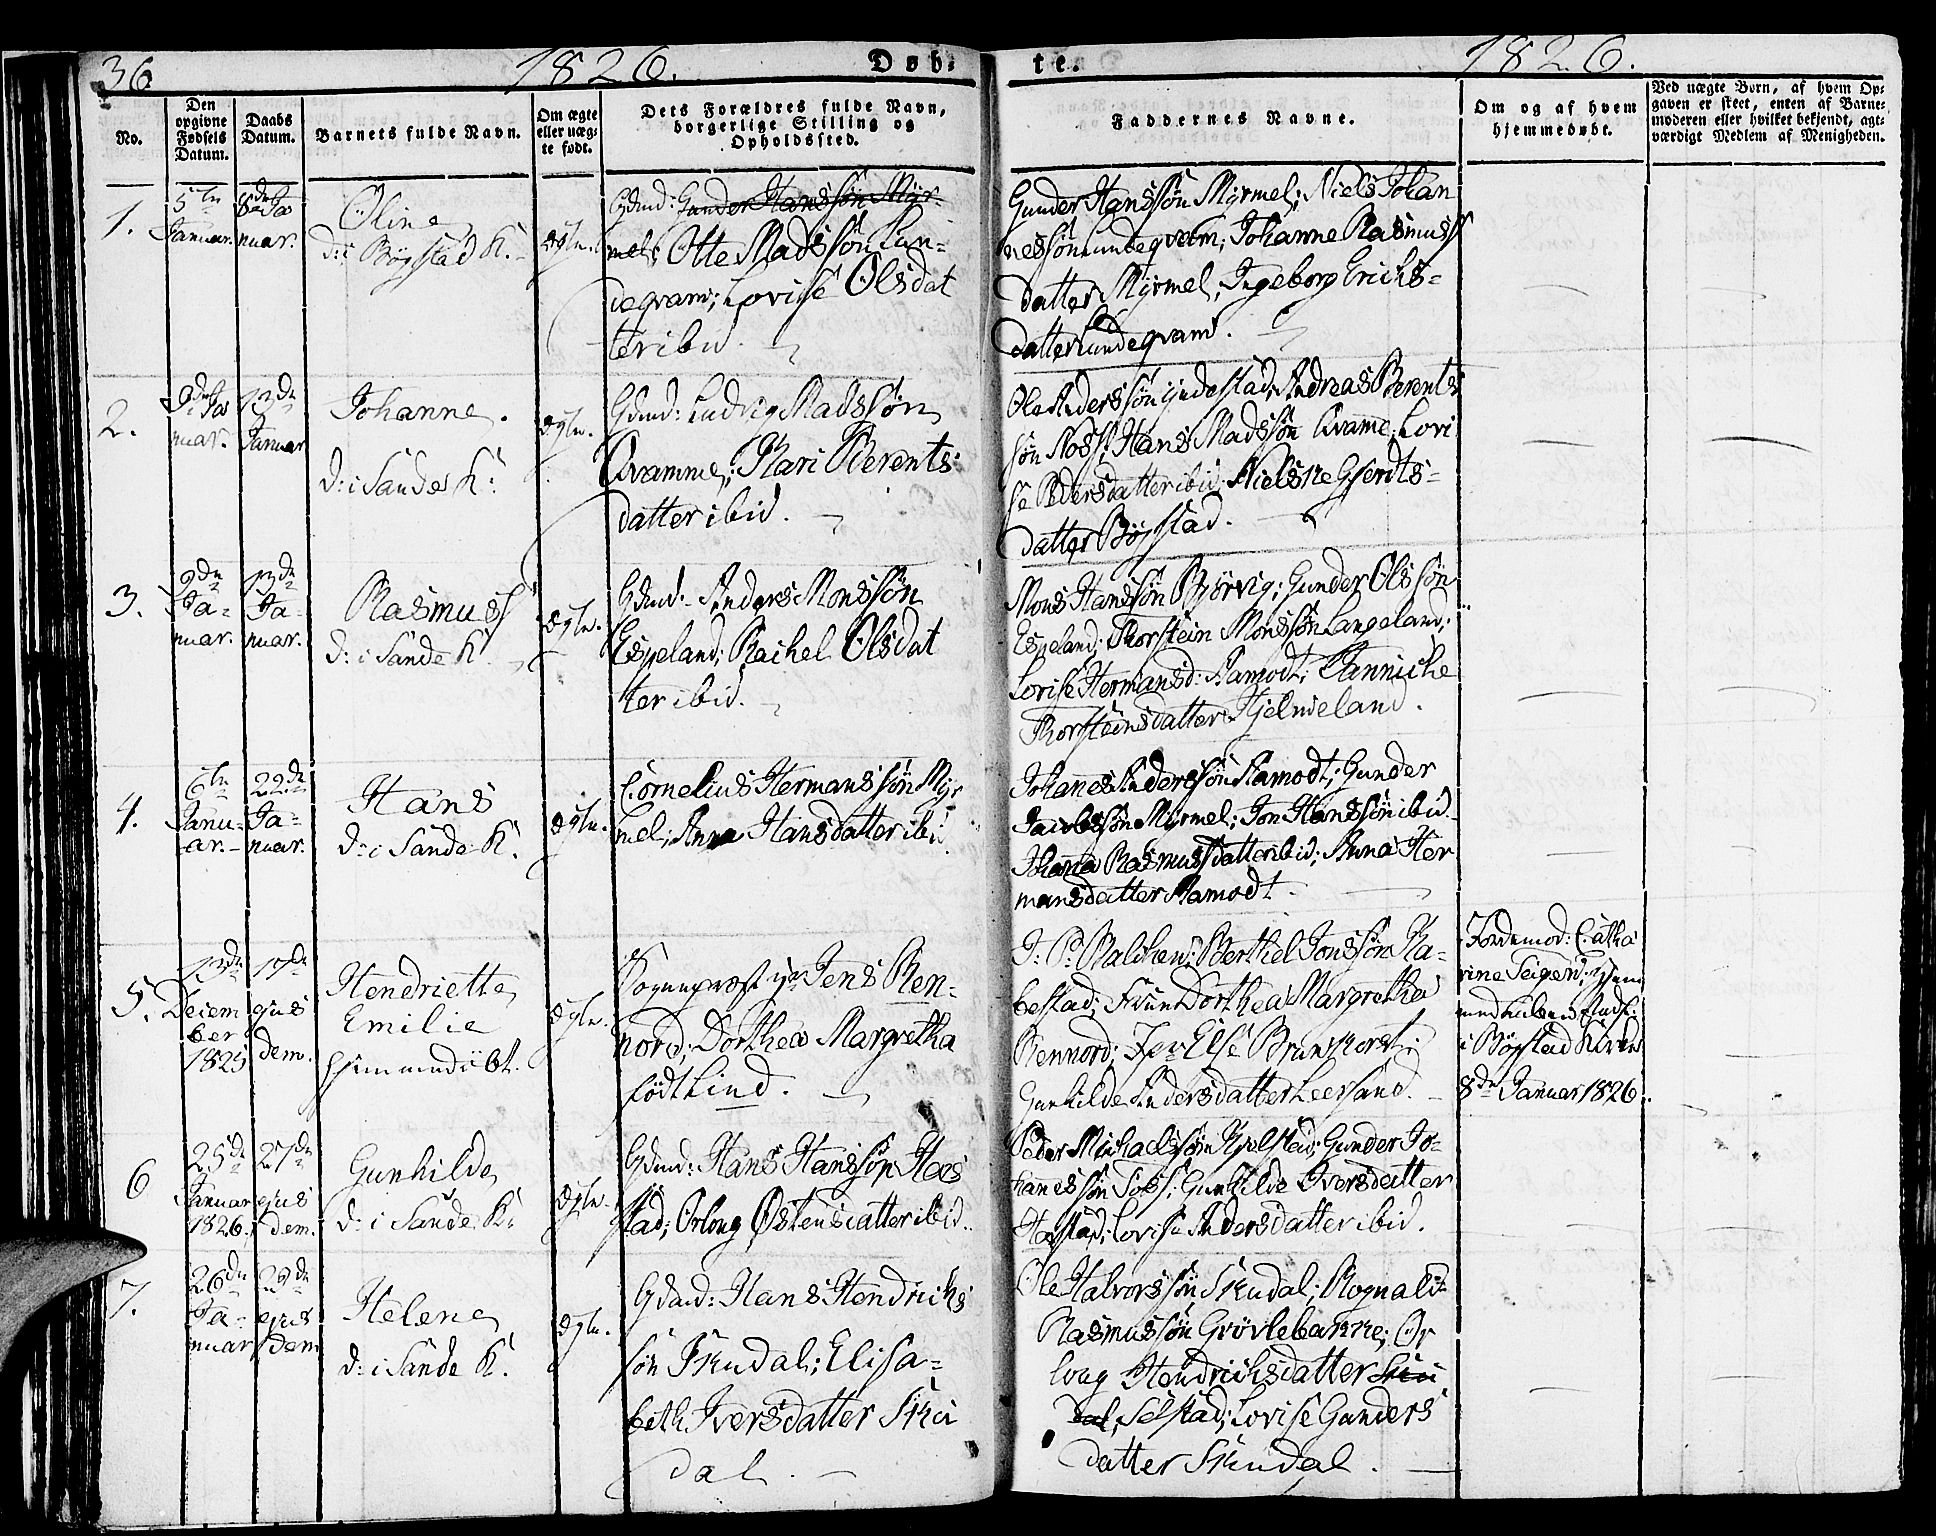 36
1826.
Døb-
te.
1826.
No.
Den opgivne Fødsels Datum.
Daabs Datum.
Barnets fulde Navn.
Om ægte eller uæg- te født.
Dets Forældres fulde Navn, borgerlige Stilling og Opholdssted.
Faddernes Navne.
Om og af hvem hjemmedøbt.
Ved uægte Børn, af hvem Op- gaven er skeet, enten af Barne- moderen eller hvilket bekjendt, agt- værdigt Medlem af Menigheden.
1.
5te Januar.
8de Ja nuar.
Oline
d: i Bøgstad K.
Ægte.
Gdmd: Gunder Hanssøn Myr-
mel; Otte Madssøn Lun-
deqvam; Lovise Olsdat
ter ibid.
Gunder Hanssøn Myrmel; Niels Johan
nessøn Lundeqvam; Johanne Rasmuss
datter Myrmel; Ingeborg Erichs-
datter Lundeqvam.
2.
9de Ja nuar.
13de Januar
Johanne.
d: i Sande K:
Ægte.
Gdmd: Ludvig Madssøn
Qvamme; Kari Berents-
datter ibid.
Ole Anderssøn Indestad; Andreas Berents
søn Noss; Hans Madssøn Qvamme; Lovi
se Pedersdatter ibid; Nielske Gjerdts-
datter Bøgstad.
3.
9de Ja- nuar.
13de Ja- nuar.
Rasmus
d: i Sande K.
Ægte.
Gdmd: Anders Monssøn
Espeland; Rachel Olsdat
ter ibid.
Mons Hanssøn Bjørvig; Gunder Olssøn
Espeland; Thorstein Monssøn Langeland;
Lovise Hermansd: Aamodt; Tanniche
Thorsteinsdatter Hjelmeland.
4.
6te Janu- ar.
22de Ja- nuar.
Hans
d: i Sande K.
Ægte.
Cornelius Hermanssøn Myr
mel; Anna Hansdatter ibid.
Johanes Anderssøn Aamodt; Gunder
Jacobssøn Myrmel; Jon Hanssøn ibid.
Johanna Rasmusdatter ibid; Anna Her
mansdatter Aamodt.
5.
13de Decem ber 1825
17de ejus dem.
Hendriette
Emilie
hjemmedøbt.
Ægte.
Sognepræst Hr Jens Ren-
nord; Dorthea Margretha
født Lind.
J: P: Balchen; Berthel Jonssøn Ra-
bestad; Frue Dorthea Margretha
Rennord; Jfr Else Brunshorst;
Gunhilde Andersdatter Leersand.
Jordemod: Catha
rine Seiger;
i Bøgstad Kirke
8de Januar 1826.
6
25de Januar 1826.
27de ejus dem.
Gunhilde
d: i Sande K:
Ægte.
Gdmd: Hans Hanssøn Haa
stad; Orlong Østensdatter ibid.
Peder Michaelssøn Kjelstad; Gunder Jo-
hannessøn Soss; Gunhilde Iversdatter
Haastad; Lovise Andersdatter ibid.
7.
26de Ja- nuar
29de ejus dem
Helene
d: i Sande K.
Ægte.
Gdmd: Hans Hendrichs
søn Skudal; Elisa-
beth Iversdatter Sku
dal.
Ole Halvorssøn Skudal; Rognald
Rasmussøn Grøvlebakke; Or
loug Hendrichsdatter Sku
dal, Selstad; Lovise Gunders
datter Skudal.